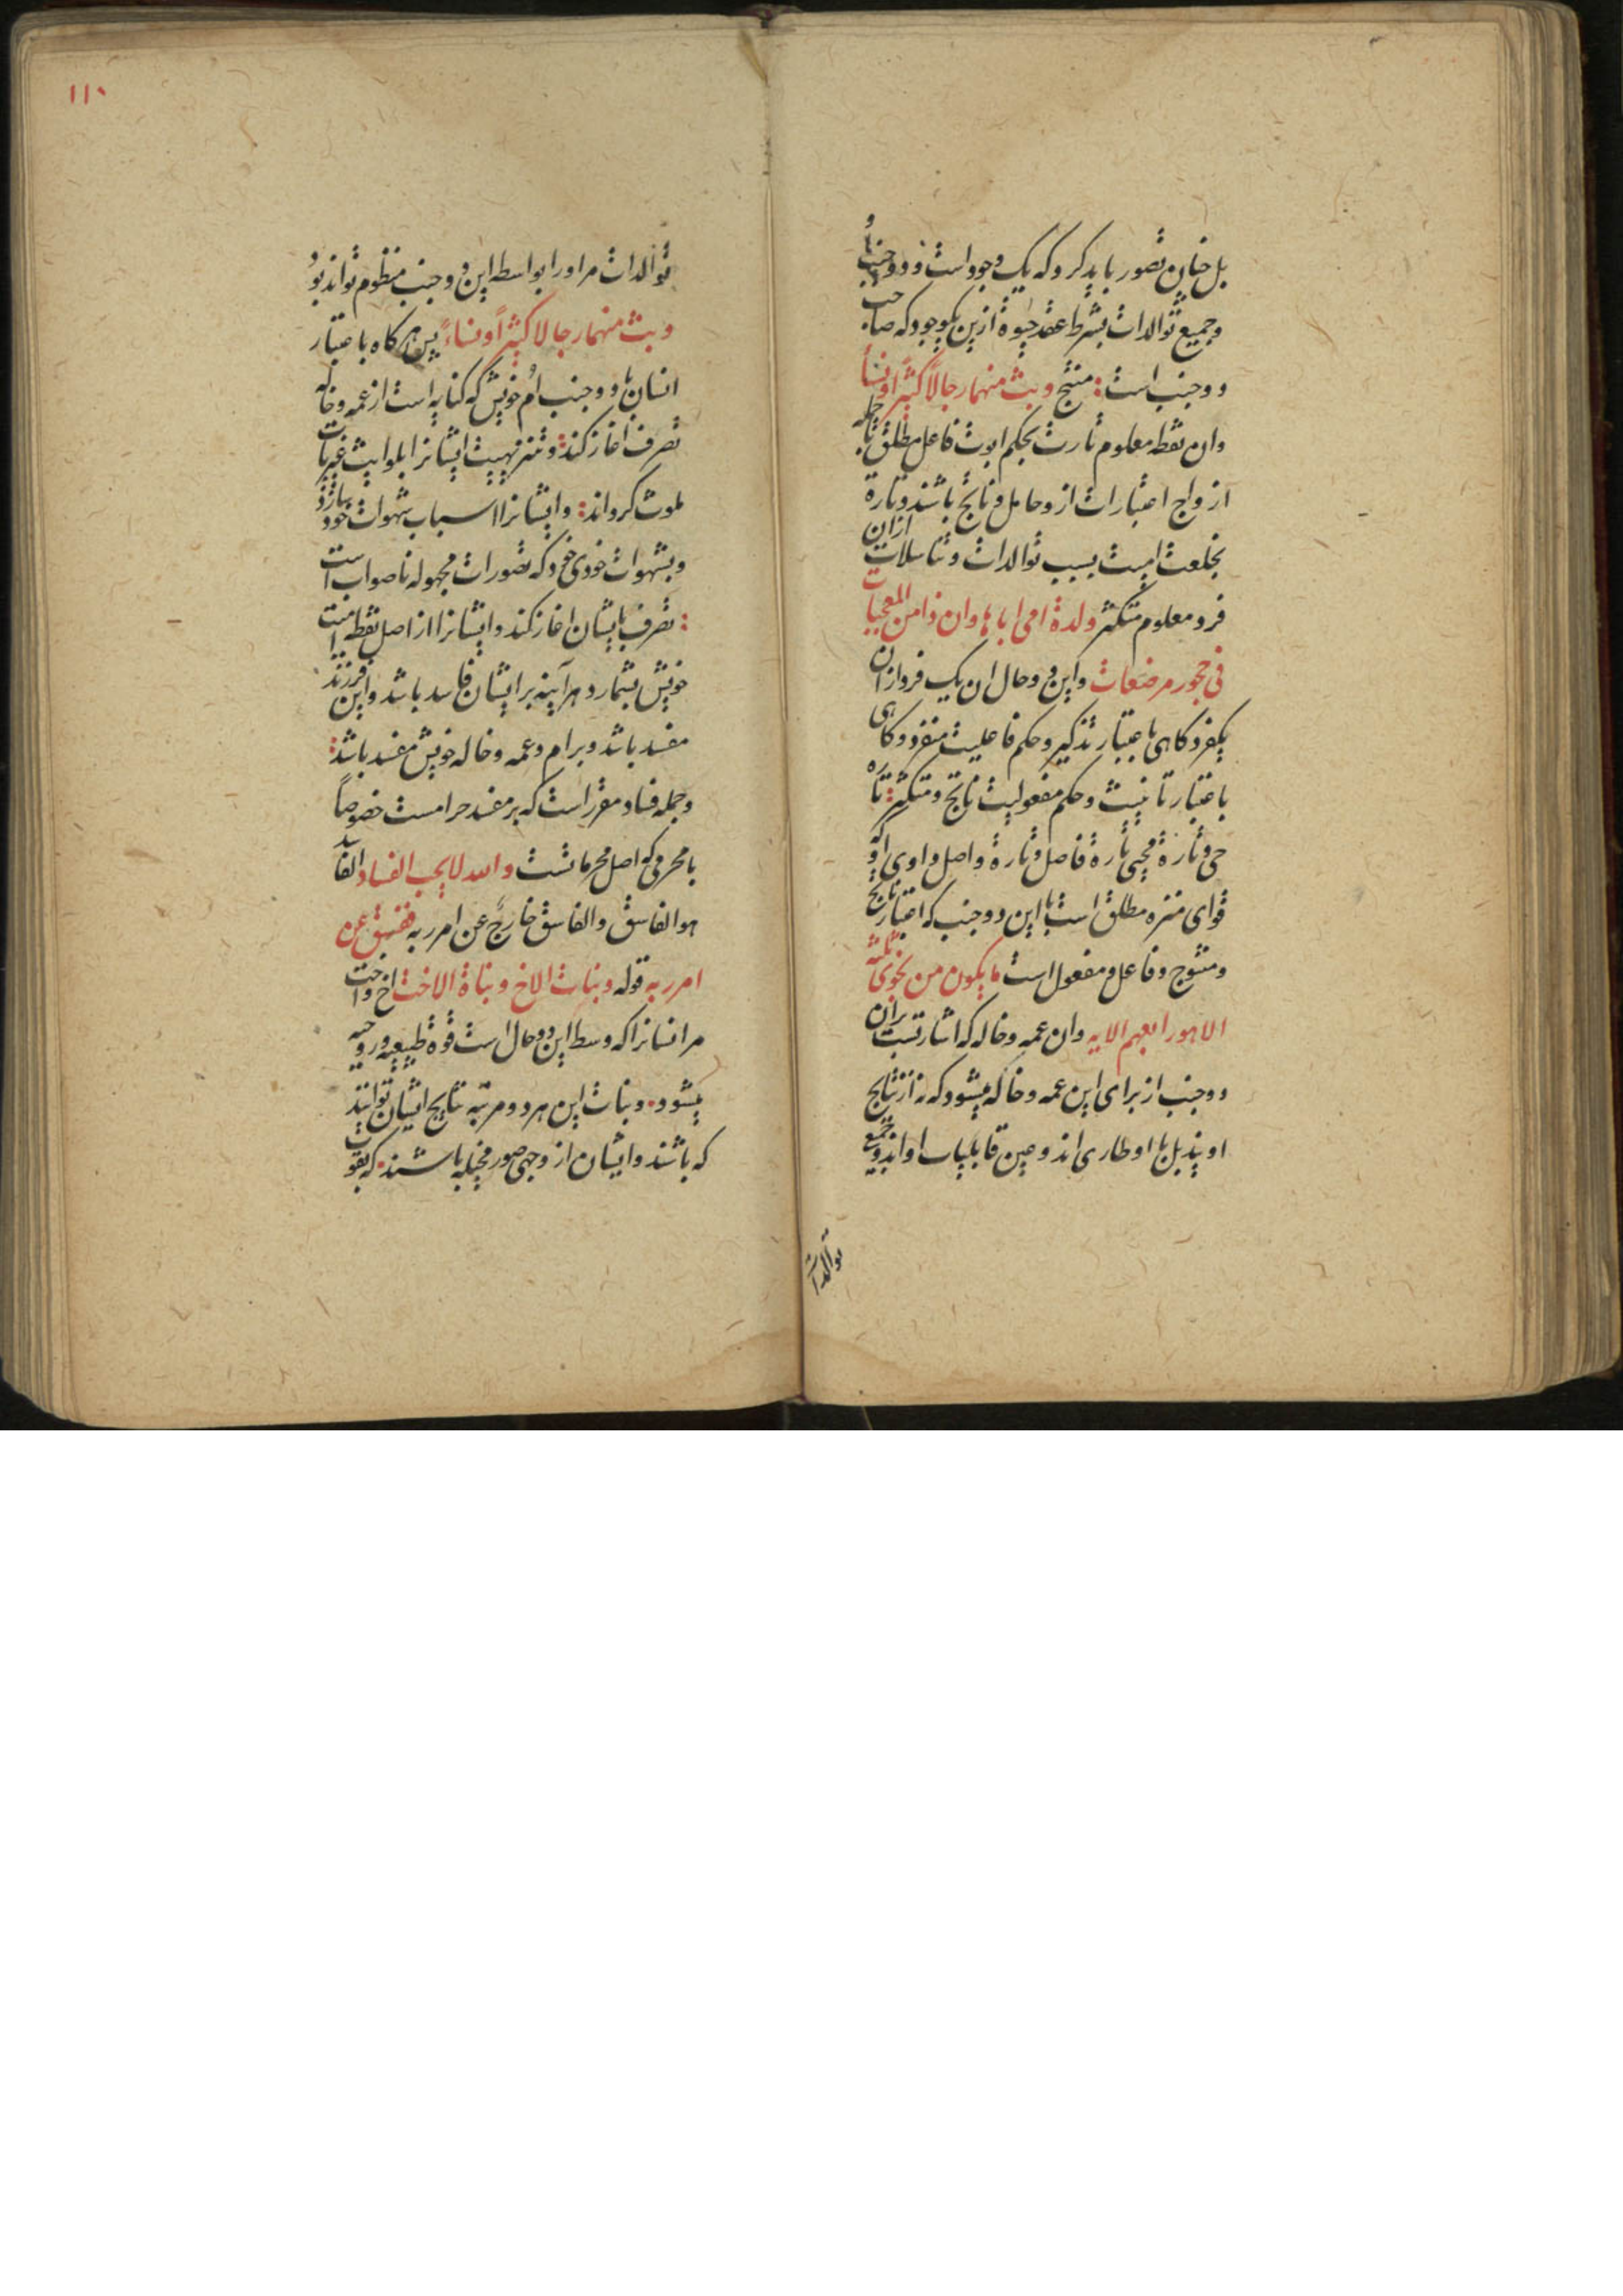 بل چنان تصور باید کرد که یک وجود است و دو جنب
و جمیع توالدات بشرط عقد حیوة ازین یکوجود که صاحب
دو جنب است: منتج وبث منهما رجالا کثیرا ونسأ
وان نقطه معلوم تارت بحکم ابوت فاعل مطلق تا جمله
ازواج اعتبارات ازو حامل و ناتج باشند و تارة
بخلعت امیت بسبب توالدات و تناسلات ازان
فرد معلوم متکثر ولدة امی اباها وان ذا من العجبات
فی حجور مرضعات واین دو حال ان یک فرد ازان
یکفرد کاهی باعتبار تذکیر و حکم فاعلیت منفرد و کاهی
باعتبار تانیث و حکم مفعولیت ناتج و متکثر: تاره
حی و تارة محیی تارة فاصل و تارة واصل و اوی که او
قوای منزه مطلق است با این دو جنب که اعتبار ناتج
و منتوج و فاعل و مفعول است ما یکون من نجوی ثلثه
الا هو رابعهم الایه وان عمه و خاله که اشارتست بران
دو جنب از برای این عمه و خاله میشود که نه از نتایج
او یند بل با او طاری اند و عین قابلیات او اند و جمیع
توالدات
١١٠
توالدات مر اورا بواسطه این دو جنب منظوم تواند بود
وبث منهما رجالا کثیراً ونساءً پس هرکاه باعتبار
انسان با دو جنب اُم خویش که کنایه است از عمه و خاله
تصرف اغاز کند: و تنزیهیت ایشانرا بلوایث غیریات
ملوث کرداند: و ایشانرا اسباب شهوات خود سازد
و بشهوات خودی خود که تصورات مجهوله ناصواب است
: تصرف بایشان اغاز کند و ایشانرا از اصل نقطه امیت
خویش بشمارد هر آینه بر ایشان فاسد باشد و این فرزند
مفسد باشد و بر ام و عمه و خاله خویش مفسد باشد:
و جمله فساد مقرر است که بر مفسد حرامست خصوصاً
با محرمی که اصل محرماتست والله لا یحب الفساد الفاسد
هو الفاسق والفاسق خارجٌ عن امر ربه ففسق عن
امر ربه قوله وبنات الاخ وبناة الاخت اخ و اخت
مر انسانرا که وسط این دو حال است قوة طبیعیه و روحیه
میشود. و بنات این هر دو مرتبه نتایج ایشان توانند
که باشند و ایشان از وجهی صور مخیله باشند. که بقوت